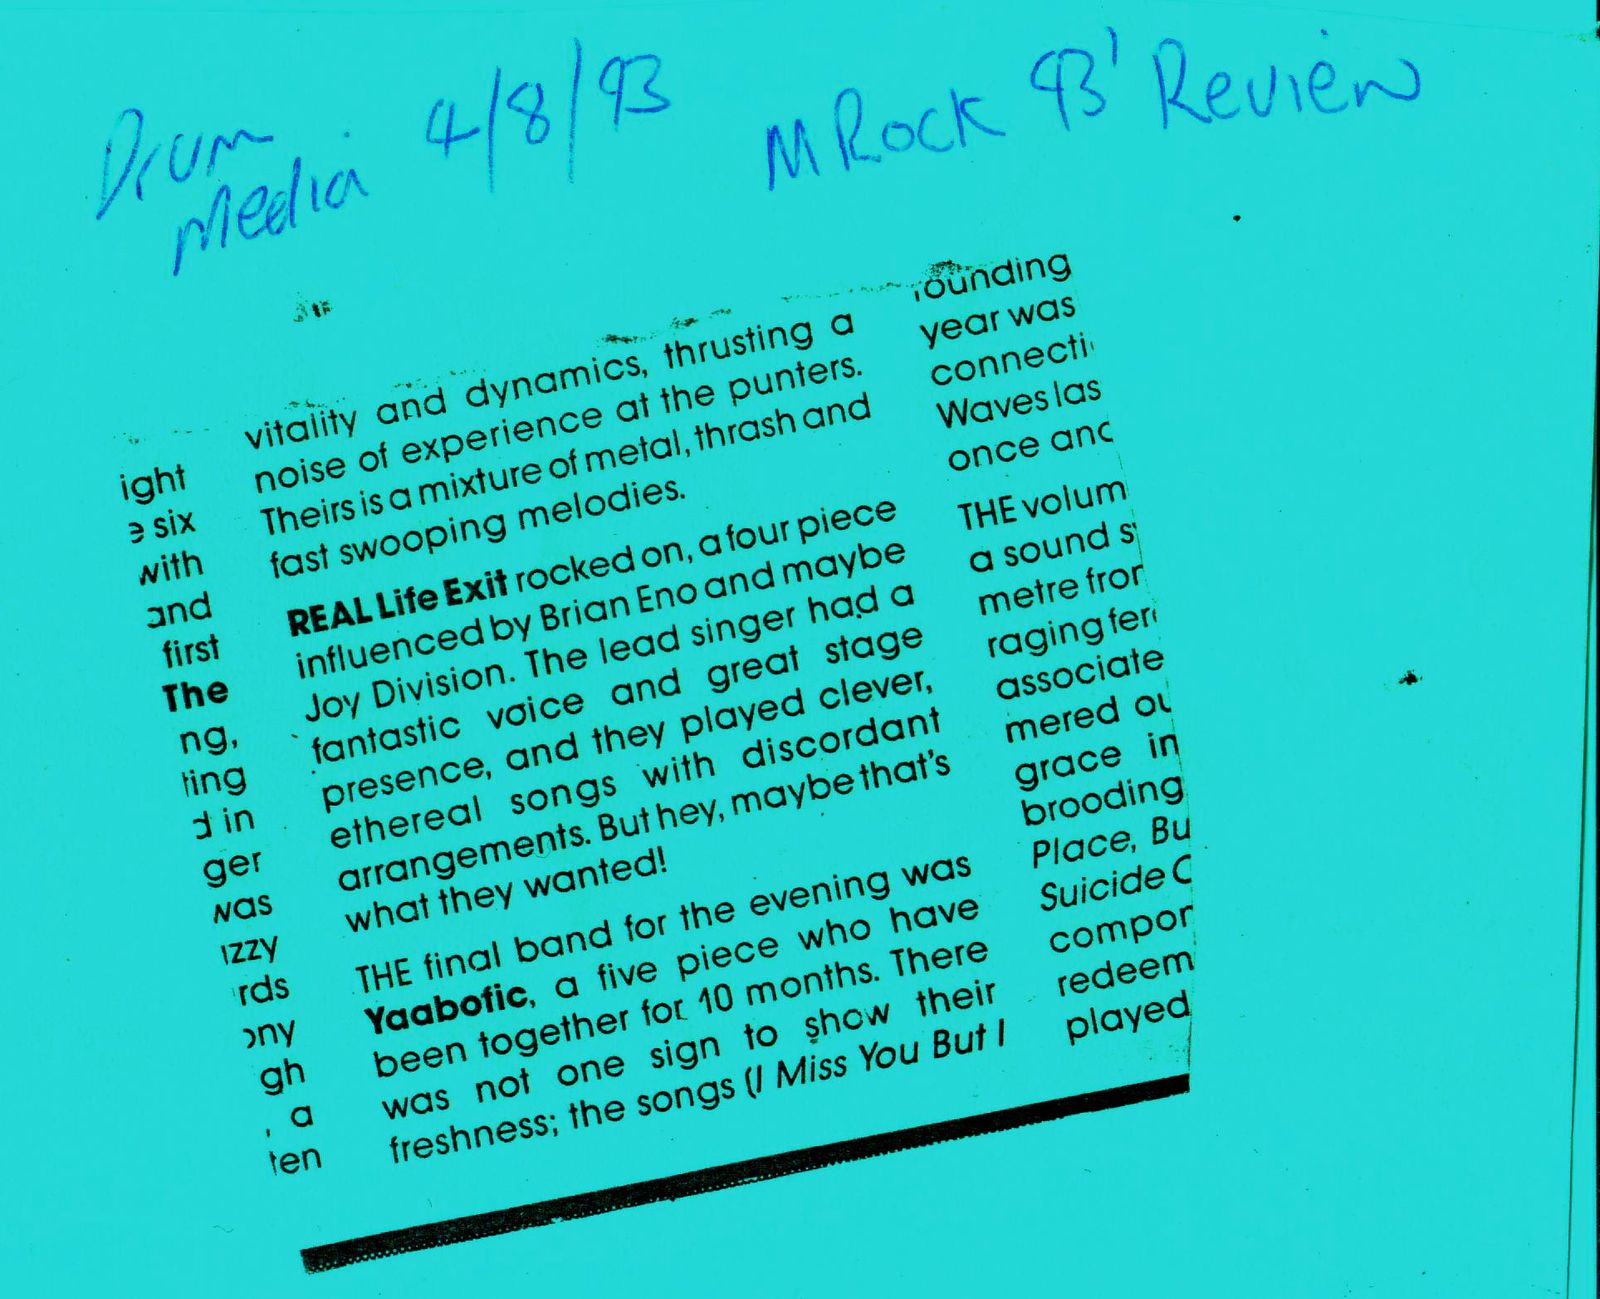 Drum
Media
4/8/93
MRock 93' Review
ight
six
with
and
first
The
ng,
ting
d in
ger
was
izzy
rds
ony
gh
, a
ten
vitality and dynamics, thrusting a
noise of experience at the punters.
Theirs is a mixture of metal, thrash and
fast swooping melodies.
REAL Life Exit rocked on, a four piece
influenced by Brian Eno and maybe
Joy Division. The lead singer had a
fantastic voice and great stage
presence, and they played clever,
ethereal songs with discordant
arrangements. But hey, maybe that's
what they wanted!
THE final band for the evening was
Yaabofic, a five piece who have
been together for 10 months. There
was not one sign to show their
freshness; the songs (I Miss You But I
rounding
year was
connecti
Waves las
once and
THE volum
a sound s
metre fror
raging fer
associate
mered ou
grace in
brooding
Place, Bu
Suicide C
compor
redeem
played